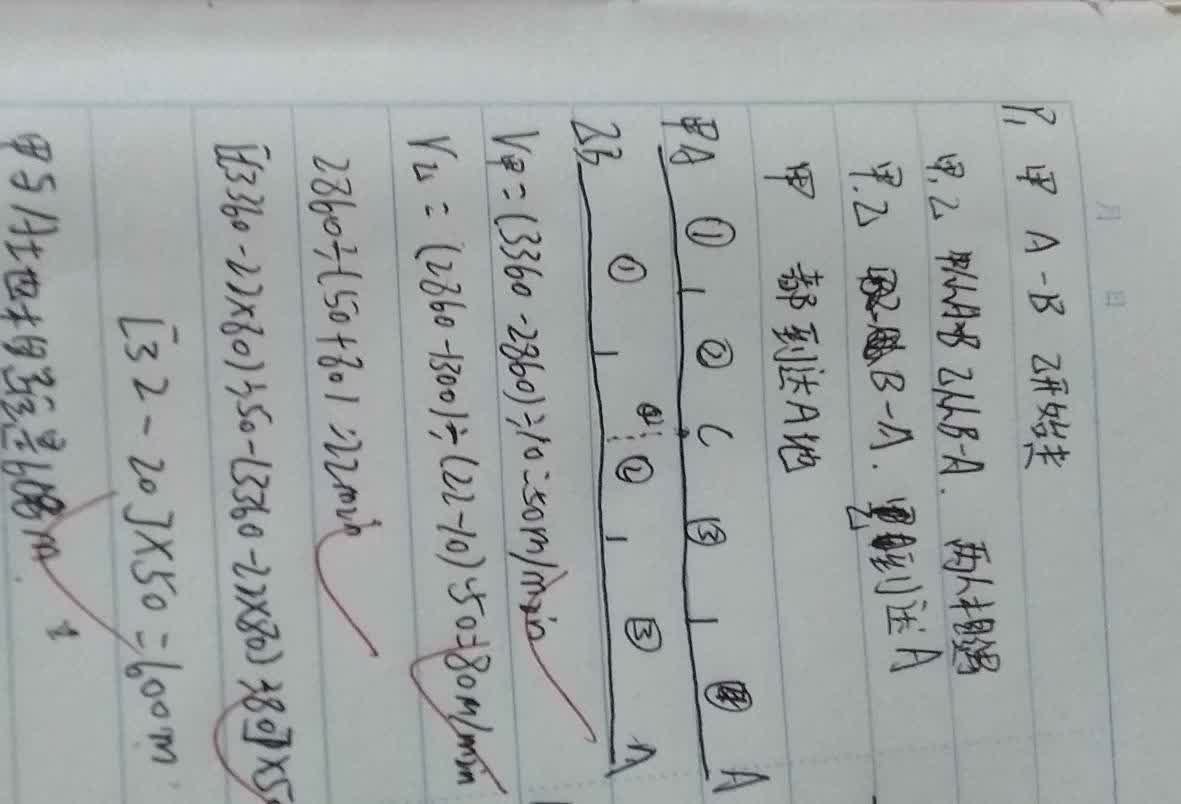 月 日
P₁ 甲 A-B 乙开始走
甲.乙 甲从A-B 乙从B-A. 两人相遇
甲.乙 B-A. 乙到达A
甲 都到达A地
甲A ① ② C ③ ④ A
乙B ① ② ③ A
V甲=(3360-2860)÷10=50m/min
V乙=(2860-1300)÷(22-10)-50=80m/min
2860÷(50+80)=22min
[(3360-22×80)÷50-(3360-22×80)÷80]×5
[32-20]×50=600m